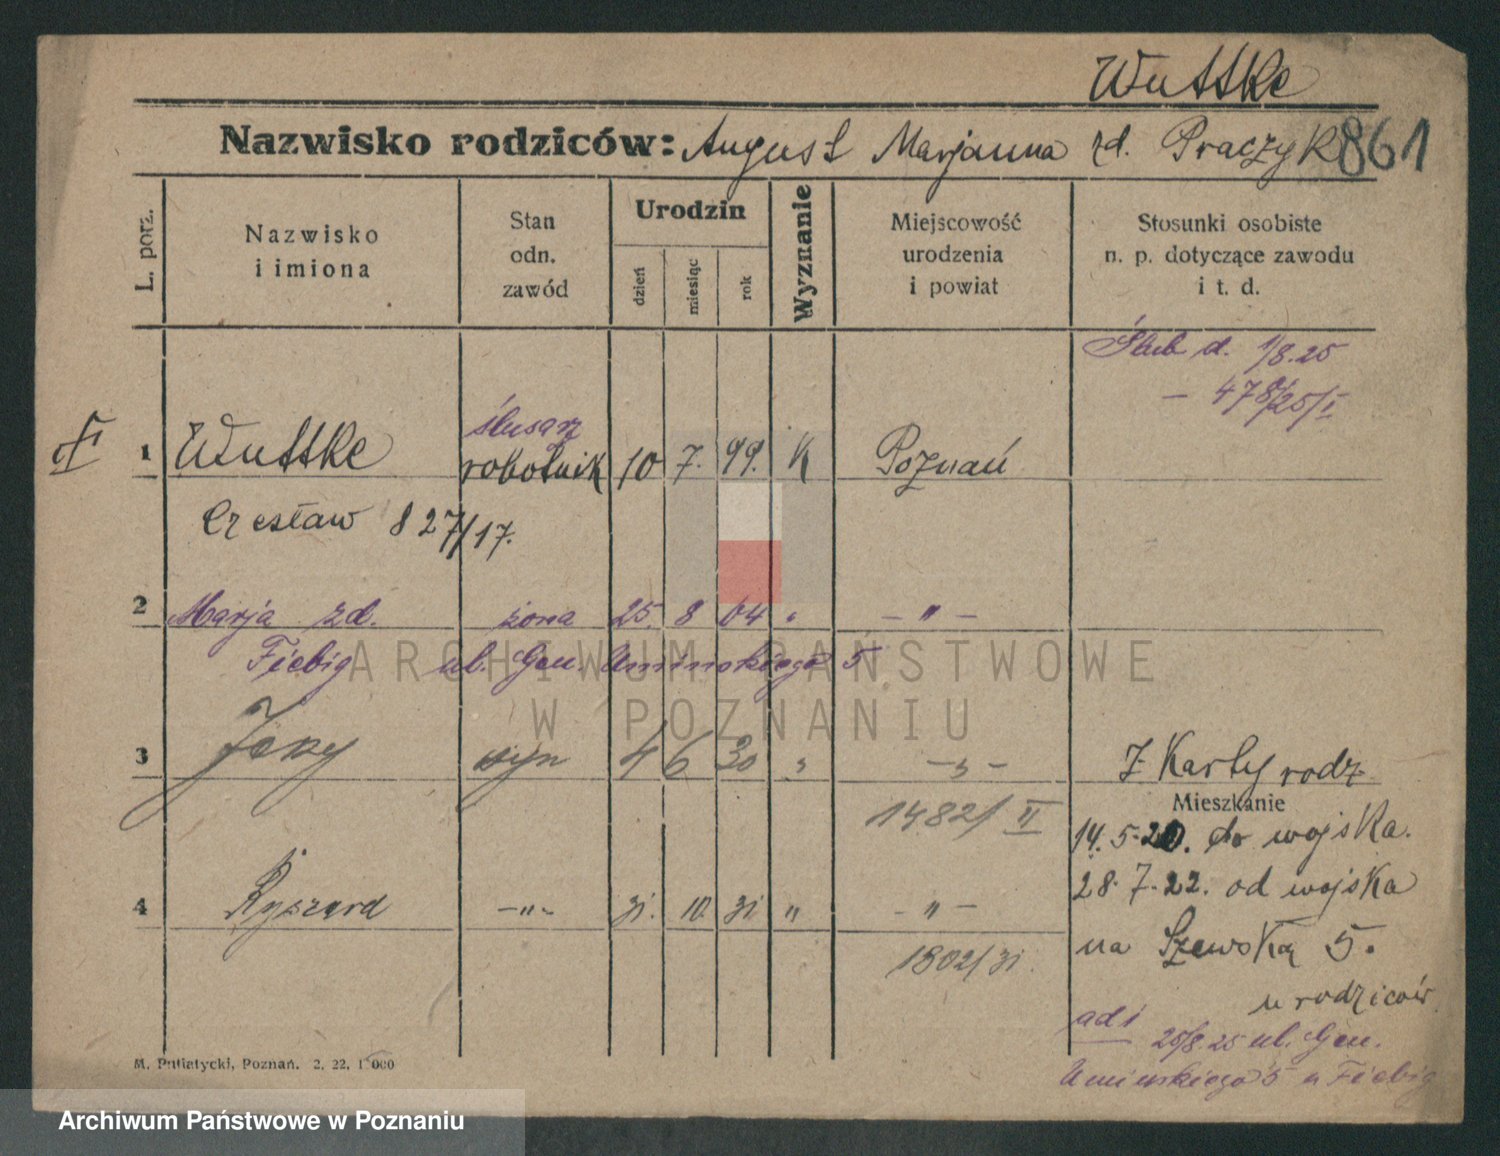 Wuttke
Nazwisko rodziców: August Marjanna zd. Praczyk 861
L. porz.
Nazwisko i imiona
Stan odn. zawód
Urodzin
dzień
miesiąc
rok
Wyznanie
Miejscowość urodzenia i powiat
Stosunki osobiste n. p. dotyczące zawodu i t. d.
Ślub d. 1/8.25
- 478/25/I
ślusarz
1 Wuttke robotnik 10 7. 99. K Poznań
Czesław 827/17.
2 Marja zd. żona 25. 8 04 " - " -
Fiebig ul. Gen. Umińskiego 5
ARCHIWUM PAŃSTWOWE
W POZNANIU
3 Jerzy syn 4 6 30 " - " -
Z Karty rodz
1482/II
Mieszkanie
14. 5. 20. do wojska.
28. 7. 22. od wojska
4 Ryszard - " - 31. 10. 31 " - " -
na Szewską 5.
1802/31.
u rodziców
ad 1
25/8.25 ul. Gen.
Umińskiego 5 u Fiebig
M. Putiatycki, Poznań. 2. 22. 15000
Archiwum Państwowe w Poznaniu